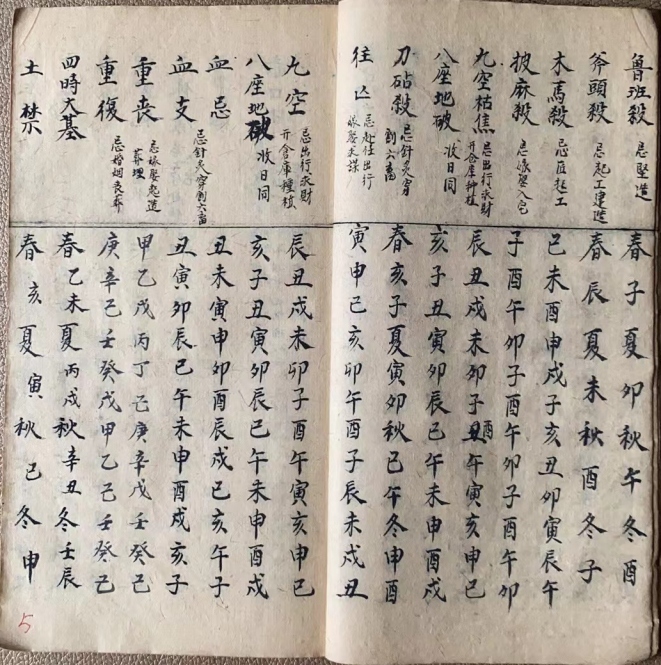 魯班殺 忌竪造 春子夏卯秋午冬酉
斧頭殺 忌起工造 春辰夏未秋酉冬子
木馬殺 忌匠起工 巳未酉申戌子亥丑卯寅辰午
披麻殺 忌嫁娶入宅 子酉午卯子酉午卯子酉午卯
九空枯焦 忌出行求財 开倉庫种植 辰丑戌未卯子酉午寅亥申巳
八座地破 收日同 亥子丑寅卯辰巳午未申酉戌
刀砧殺 忌針灸穿 割六畜 春亥子夏寅卯秋巳午冬申酉
往亡 忌赴任出行 嫁娶求謀 寅申巳亥卯午酉子辰未戌丑
九空 忌出行求財 开倉庫種植 辰丑戌未卯子酉午寅亥申巳
八座地破 收日同 亥子丑寅卯辰巳午未申酉戌
血忌 丑未寅申卯酉辰戌巳亥午子
血支 忌針灸穿割六畜 丑寅卯辰巳午未申酉戌亥子
重喪 忌嫁娶起造 葬埋 甲乙戊丙丁己庚辛戊壬癸己
重復 忌婚姻喪葬 庚辛己壬癸戊甲乙己壬癸己
四時大墓 春乙未夏丙戌秋辛丑冬壬辰
土禁 春亥夏寅秋巳冬申
5